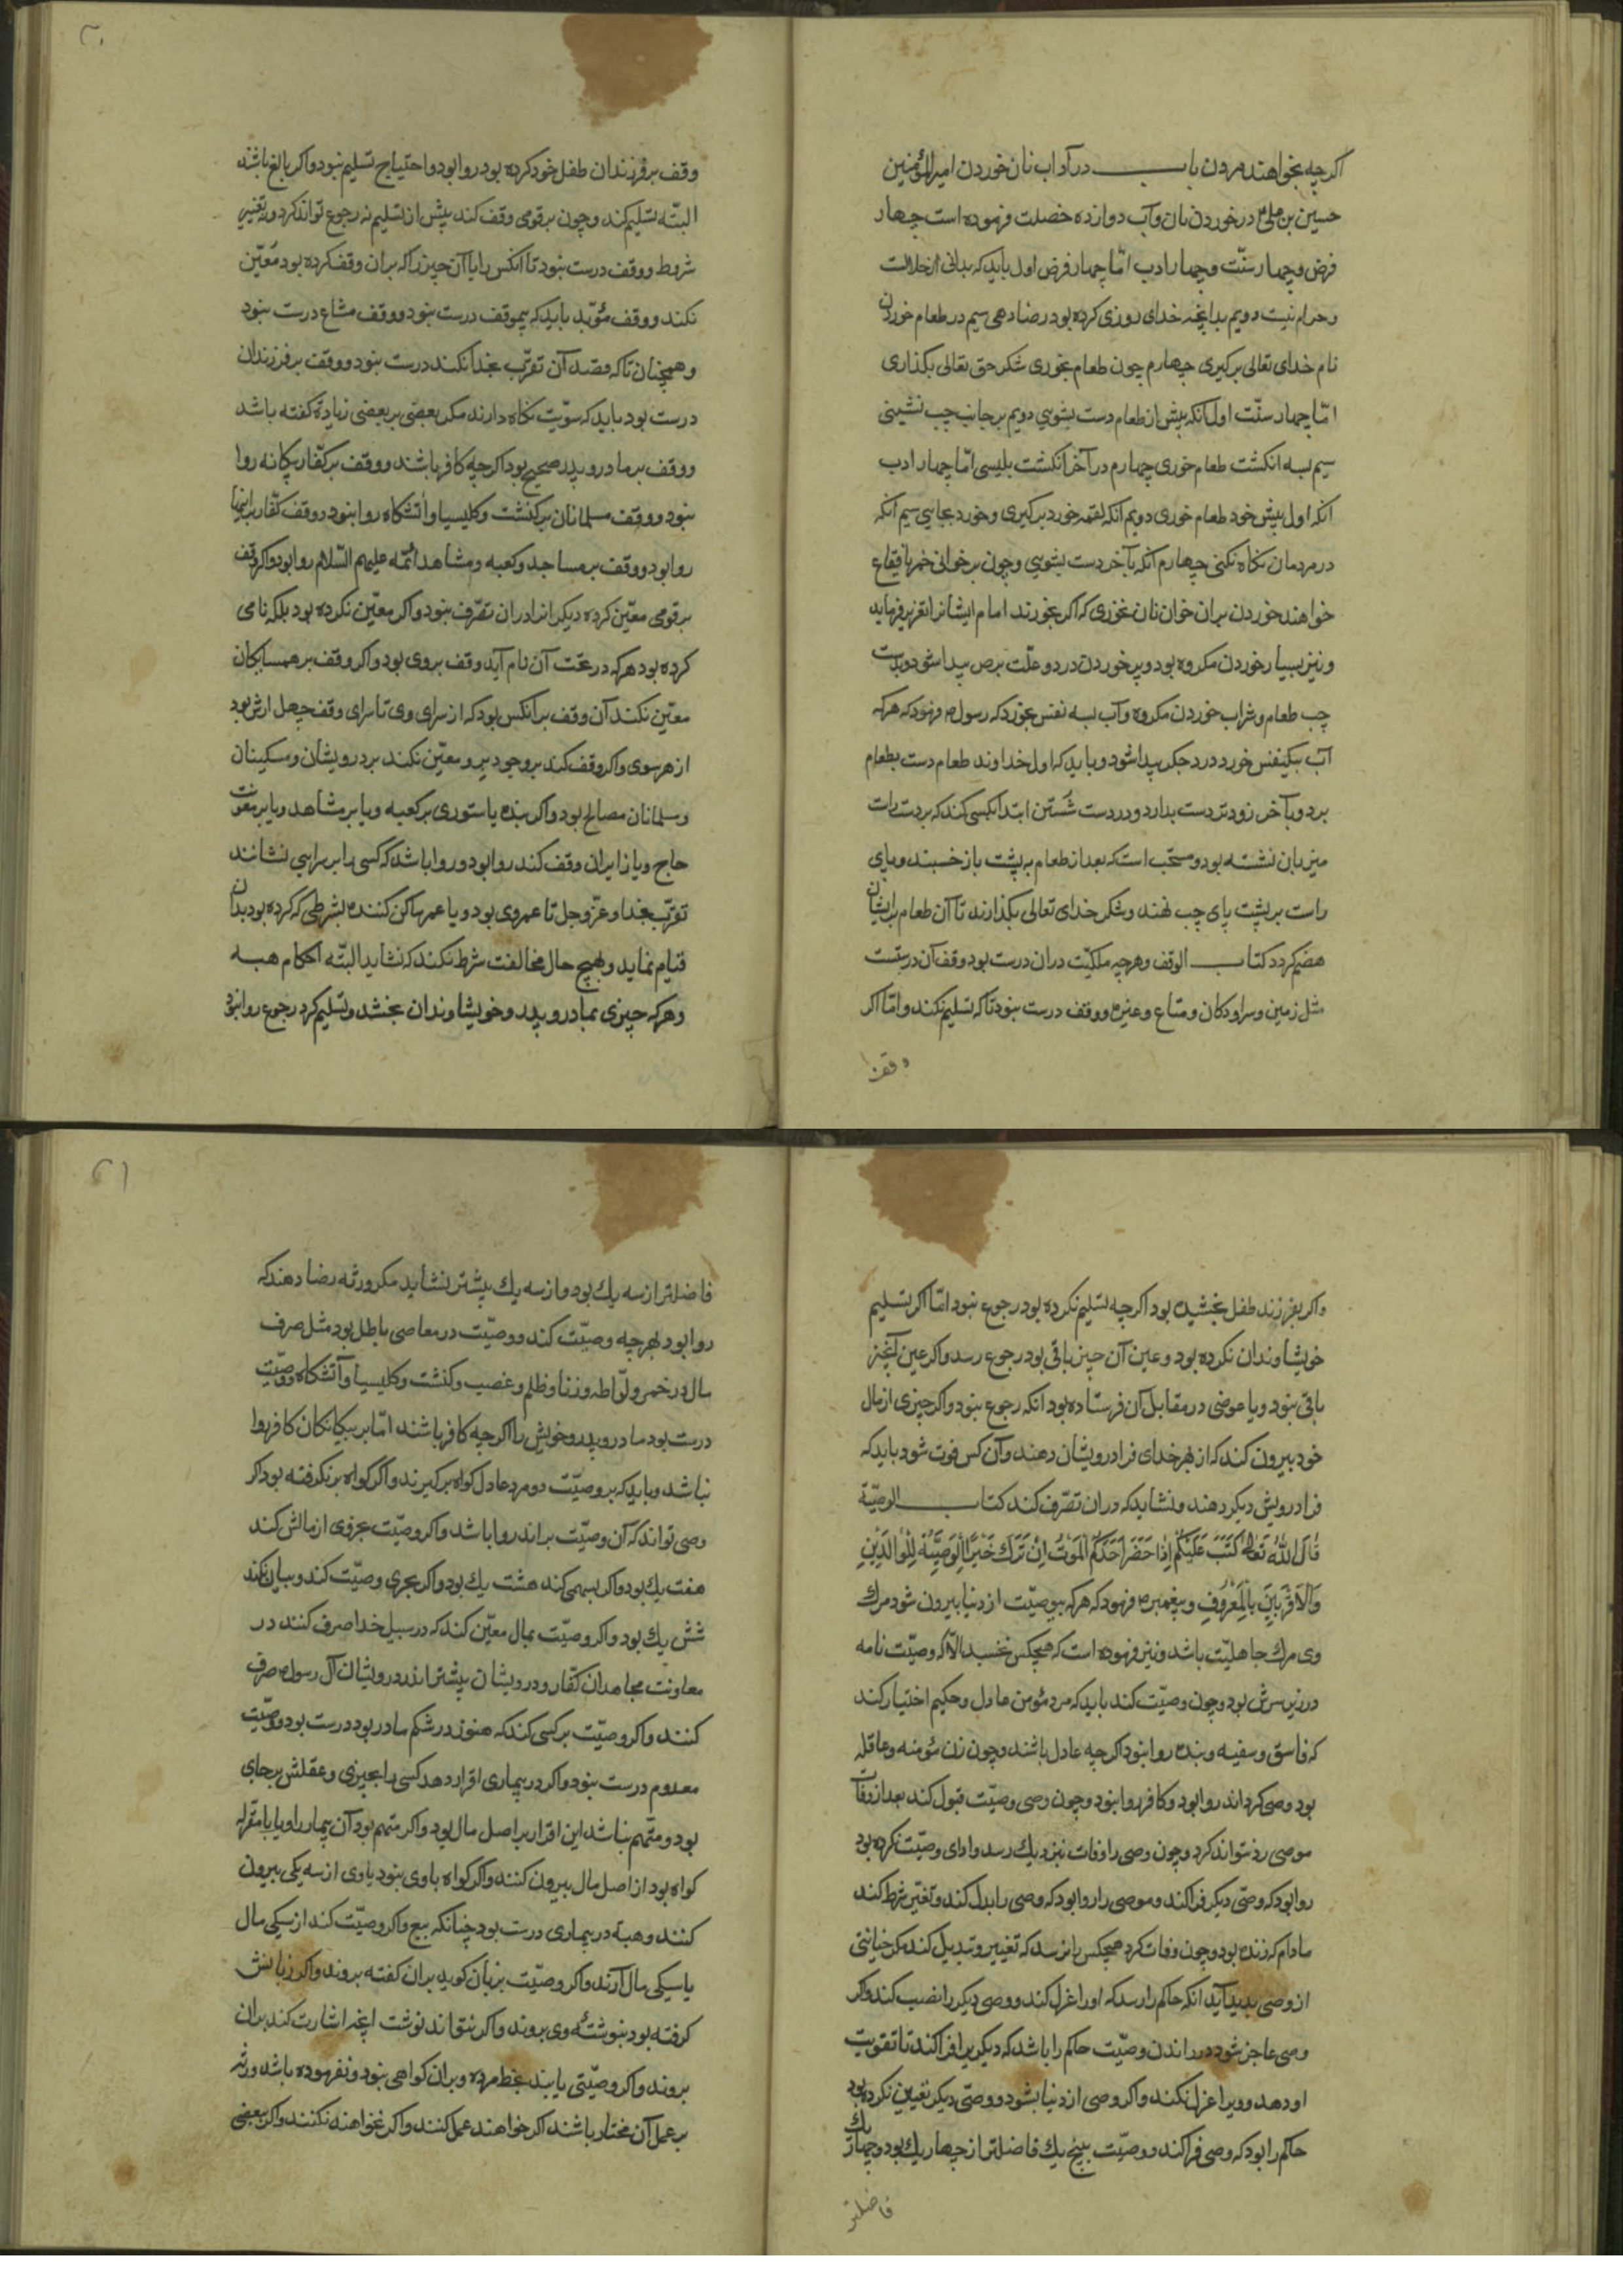 اگرچه بخواهند مردن باب در آداب نان خوردن امیرالمؤمنین
حسین بن علی در خوردن نان و آب دوازده خصلت فرموده است چهار
فرض و چهار سنّت و چهار ادب امّا چهار فرض اول باید که بدانی از حلالست
و حرام نیست دویم بدانچه خدای روزی کرده بود رضا دهی سیم در طعام خوردن
نام خدای تعالی برگیری چهارم چون طعام بخوری شکر حق تعالی بگذاری
امّا چهار سنّت اول آنکه پیش از طعام دست بشویی دویم بر جانب چپ نشینی
سیم بسه انگشت طعام خوری چهارم در آخر انگشت بلیسی امّا چهار ادب
آنکه اول پیش خود طعام خوری دویم آنکه لقمه خورد برگیری و خورد بخایی سیم آنکه
در مردمان نگاه نکنی چهارم آنکه بآخر دست بشویی و چون بر خوانی خمر یا فقاع
خواهند خوردن بران خوان نان نخوری که اگر بخورند امام ایشانرا تعزیر فرماید
و نیز بسیار خوردن مکروه بود و پر خوردن درد و علّت برص پیدا شود و بدست
چپ طعام و شراب خوردن مکروه و آب بسه نفس بخورد که رسول فرمود که هرکه
آب بیکنفس خورد درد جگر پیدا شود و باید که اول خداوند طعام دست بطعام
برد و بآخر زودتر دست بدارد و در دست شُستن ابتدا بکسی کند که بر دست راست
میزبان نشسته بود و مستحب است که بعد از طعام به پشت باز خسبند و پای
راست بر پشت پای چپ نهند و شکر خدای تعالی بگذارند تا آن طعام بر ایشان
هضم گردد کتاب الوقف و هرچه ملکیّت دران درست بود وقف آن درستست
مثل زمین و سرا و دکان و متاع و غیره و وقف درست نبود تا که تسلیم نکند و امّا اگر
وقف
وقف بر فرزندان طفل خود کرده بود روا بود و احتیاج تسلیم نبود و اگر بالغ باشند
البتّه تسلیم کند و چون بر قومی وقف کند پیش از تسلیم نه رجوع تواند کرد و نه تغییر
شروط و وقف درست نبود تا آنکس را یا آن چیز را که بران وقف کرده بود مُعیّن
نکند و وقف مؤبّد باید که بیموقف درست نبود و وقف مشاع درست نبود
و همچنان تا که قصد آن تقرّب بخدا نکند درست نبود و وقف بر فرزندان
درست بود باید که سوّیت نگاه دارند مگر بعضی بر بعضی زیادة گفته باشد
و وقف بر مادر و پدر صحیح بود اگرچه کافر باشند و وقف بر کفّار بیگانه روا
نبود و وقف مسلمانان بر کنشت و کلیسیا و آتشگاه روا نبود و وقف کفّار بر اینها
روا بود و وقف بر مساجد و کعبه و مشاهد ائمّه علیهم السّلام روا بود و اگر وقف
بر قومی معیّن کرده دیگرانرا دران تصّرف نبود و اگر معیّن نکرده بود بلکه نامی
کرده بود هرکه در تحت آن نام آید وقف بروی بود و اگر وقف بر همسایگان
معیّن نکند آن وقف بر آنکس بود که از سرای وی تا سرای وقف چهل ارش بود
از هر سوی و اگر وقف کند بر وجوه بر و معیّن نکند بر درویشان و مسکینان
و مسلمانان مصالح بود و اگر بنده یا ستوری بر کعبه و یا بر مشاهد و یا بر معونت
حاج و یا زایران وقف کند روا بود و روا باشد که کسی را بر سرایی نشانند
تقرّب بخداء عزّوجل تا عمر وی بود و یا عمر ساکن کننده بشرطی که کرده بود بدان
قیام نماید و بهیچ حال مخالفت شرط نکند که نشاید البتّه احکام هبه
و هرکه چیزی بمادر و پدر و خویشاوندان بخشد و تسلیم کرد رجوع روا نبود
و اگر بفرزند طفل بخشیده بود اگرچه تسلیم نکرده بود رجوع نبود امّا اگر تسلیم
خویشاوندان نکرده بود و عین آن چیز باقی بود رجوع رسد و اگر عین آنچیز
باقی نبود و یا عوضی در مقابل آن فرستاده بود آنکه رجوع نبود و اگر چیزی از مال
خود بیرون کند که از بهر خدای فرا درویشان دهند و آن کس فوت شود باید که
فرا درویش دیگر دهند و نشاید که دران تصّرف کند کتاب الوصیّة
قَالَ اللهُ تَعٰالىٰ كُتِبَ عَلَيْكُمْ إِذٰا حَضَرَ أَحَدَكُمُ الْمَوْتُ اِنْ تَرَكَ خَيْرًا اَلْوَصِيَّةُ لِلْوٰالِدَيْنِ
وَالْاَقْرَبِينَ بِالْمَعْرُوفِ و پیغمبر فرمود که هرکه بیوصیّت از دنیا بیرون شود مرگ
وی مرگ جاهلیّت باشد و نیز فرموده است که هیچکس نخسبد الّا که وصیّت نامه
در زیر سرش بود و چون وصیّت کند باید که مرد مؤمن عادل و حکیم اختیار کند
که فاسق و سفیه و بنده روا نبود اگرچه عادل باشند و چون زن مؤمنه و عاقله
بود وصی گرداند روا بود و کافر روا نبود و چون وصی وصیّت قبول کند بعد از وفات
موصی رد نتواند کرد و چون وصی را وفات نزدیک رسد و ادای وصیّت نکرده بود
روا بود که وصّی دیگر فرا کند و موصی را روا بود که وصی را بدل کند و تغیّر شرط کند
مادام که زنده بود و چون وفات کرد هیچکس را نرسد که تغییر و تبدیل کند مگر خیانتی
از وصی پدید آید آنکه حاکم را رسد که او را عزل کند و وصی دیگر را نصب کند و اگر
وصی عاجز شود در راندن وصیّت حاکم را باشد که دیگری را فرا کند تا تقویت
او دهد و ویرا عزل نکند و اگر وصی از دنیا بشود و وصّی دیگر تعیین نکرده بود
حاکم را بود که وصی فرا کند و وصیّت بپنج یک فاضلتر از چهار یک بود و چهار یک
فاضلتر
فاضلتر از سه یک بود و از سه یک بیشتر نشاید مگر ورثه رضا دهند که
روا بود بهرچه وصیّت کند و وصیّت در معاصی باطل بود مثل صرف
مال در خمر و لوّاطه و زنا و ظلم و غصب و کنشت و کلیسیا و آتشگاه و وصیّت
درست بود مادر و پدر و خویش را اگرچه کافر باشند امّا بر بیگانگان کافر روا
نباشد و باید که بر وصیّت دو مرد عادل گواه برگیرند و اگر گواه بر نگرفته بود اگر
وصی تواند که آن وصیّت براند روا باشد و اگر وصیّت بجزوی از مالش کند
هفت یک بود و اگر بسهمی کند هشت یک بود و اگر بجری وصیّت کند و بیان نکند
شش یک بود و اگر وصیّت بمال معیّن کند که در سبیل خدا صرف کنند در
معاونت مجاهدان کفّار و درویشان بیشتر اندر درویشان آل رسول صرف
کنند و اگر وصیّت بر کسی کند که هنوز در شکم مادر بود درست بود و وصیّت
معدوم درست نبود و اگر در بیماری اقرار دهد کسی را بچیزی و عقلش بر جای
بود و متّهم نباشد این اقرار بر اصل مال بود و اگر متهم بود آن بیمار را و یا با مقرله
گواه بود از اصل مال بیرون کنند و اگر گواه با وی نبود یا وی از سه یکی بیرون
کنند و هبه در بیماری درست بود چنانکه بیع و اگر وصیّت کند از سیکی مال
یا سیکی مال آرند و اگر وصیّت بزبان گوید بران گفته بروند و اگر زبانش
گرفته بود بنوشتهٔ وی بروند و اگر نتواند نوشت آنچه اشارت کند بران
بروند و اگر وصیّتی یابند بخط مرده و بران گواهی نبود و نفرموده باشد ورثه
بر عمل آن مختار باشند اگر خواهند عمل کنند و اگر نخواهند نکنند و اگر بعضی